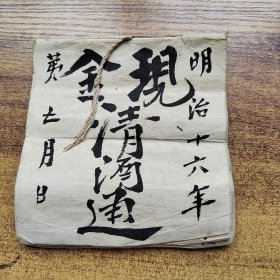 明治十六年
現金清酒通
月日